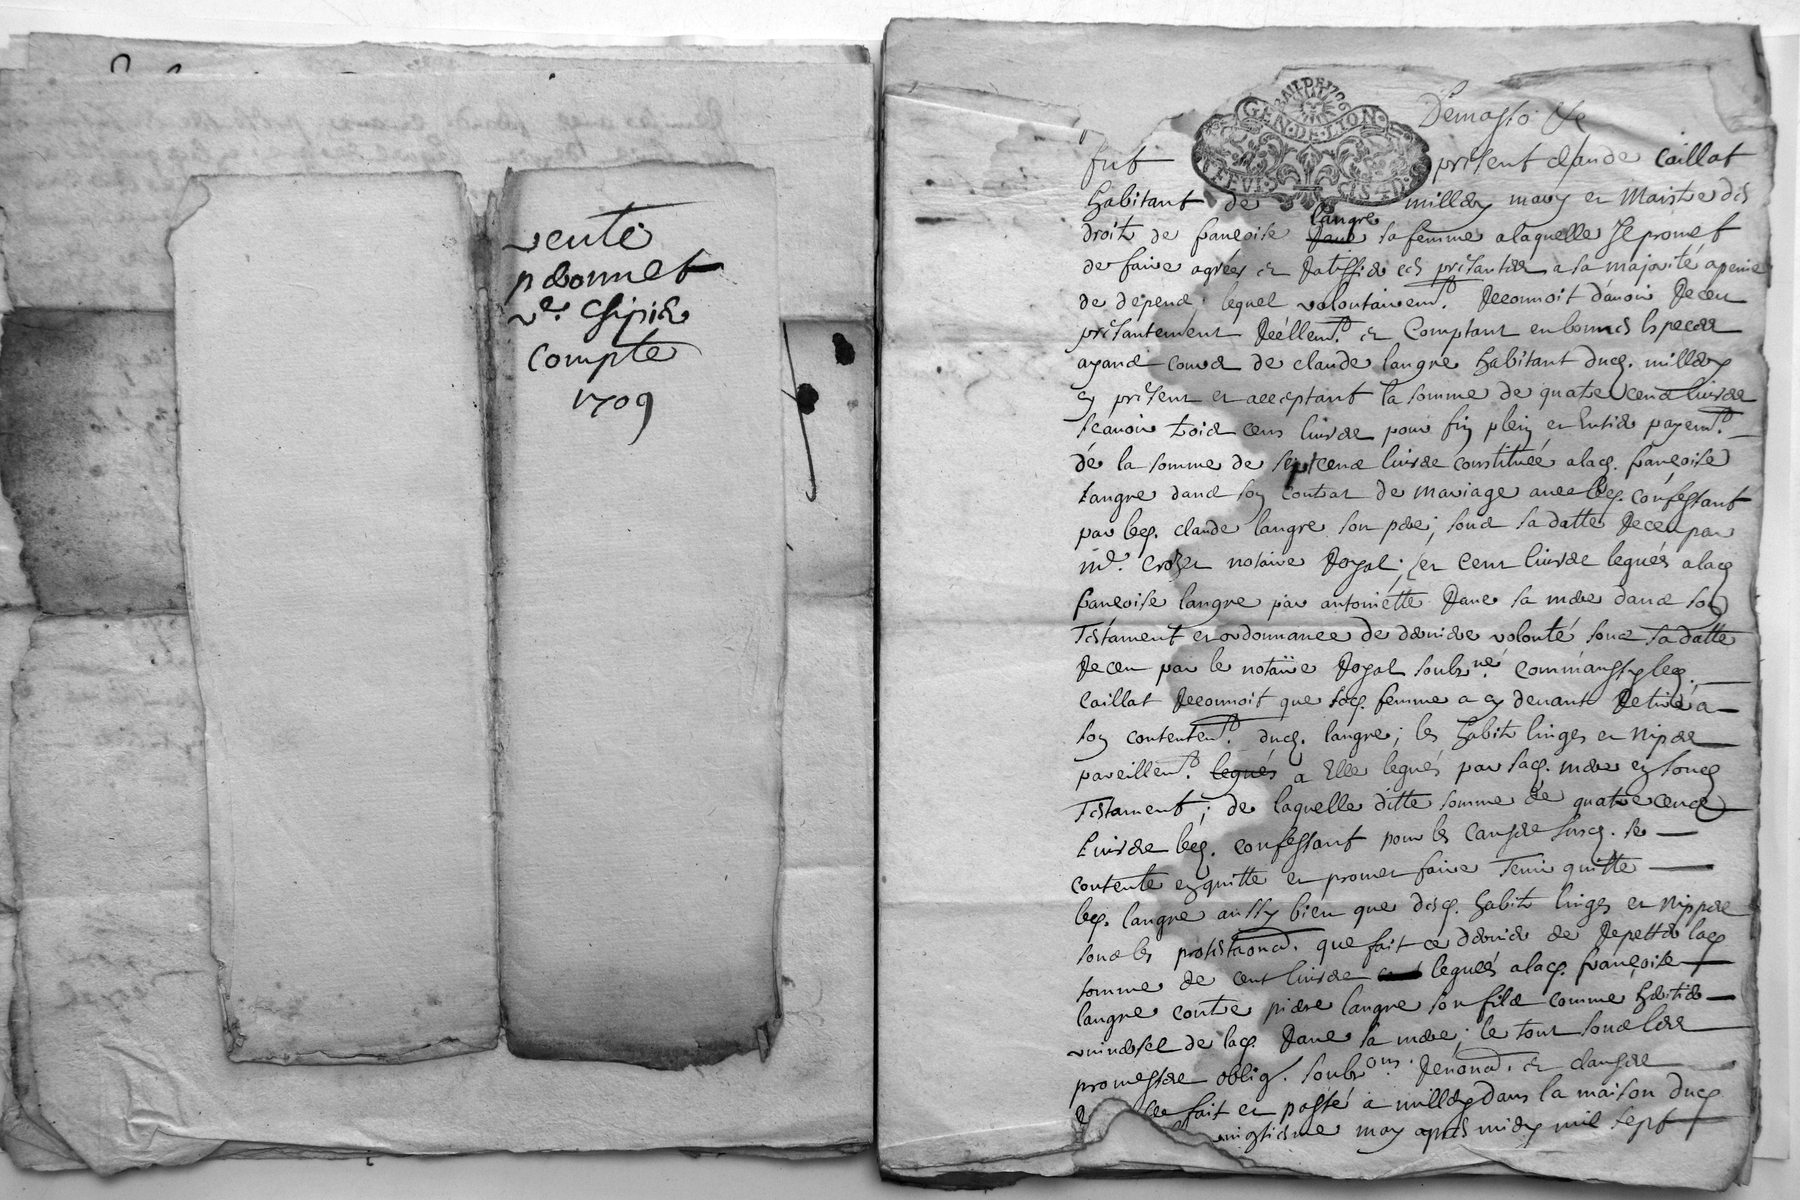 vente
p bonnet
vᵉ. Chipié
compte
1709
GEN·DE·LION
fut présent claude caillat
habitant de millery mary et Maistre des
droits de françoise langre sa femme a laquelle Je promet
de faire agréer et Ratiffier ces présantes a sa majorité a peine
de depend; lequel volontairemt. Reconnoit d'avoir Receu
présantement Réellemt. et Comptant en bonnes especes
ayant cours de claude langre habitant dud. millery
cy présent et acceptant la somme de quatre cens livres
scavoir trois cens livres pour fin plein et Entier payemt.
de la somme de sept cens livres constituée a lad. françoise
Langre dans son contrat de mariage avec led. confessant
par led. claude langre son pere; sous sa datte Receu par
me. notaire Royal; et cent livres legués a lad
françoise langre par antoinette Jane sa mere dans son
Testament et ordonnance de derniere volonté sous sa datte
Receu par le notaire Royal soubsné. comm'aussy led.
Caillat Reconnoit que sad. femme a cy devant Retiré a
son contentemt. dud. langre; les habits linges et nipes
pareillemt. legués a Elle legués par sad. mere en sond
Testament; de laquelle ditte somme de quatre cens
Livres led. confessant pour les causes susd. se
contente en quitte et promet faire Tenir quitte
led. langre aussy bien que desd. habits linges et nippes
sous les protestaons. que fait ce dernier de Repetter lad
somme de cent livres leguées a lad. françoise
langre contre pierre langre son fils comme heritier
universel de lad. Jane sa mere; le tout sous les
promesses oblig. soubsons. Renond. et clauses
fait et passé a millery dans la maison dud
vingtieme may apres midy mil sept